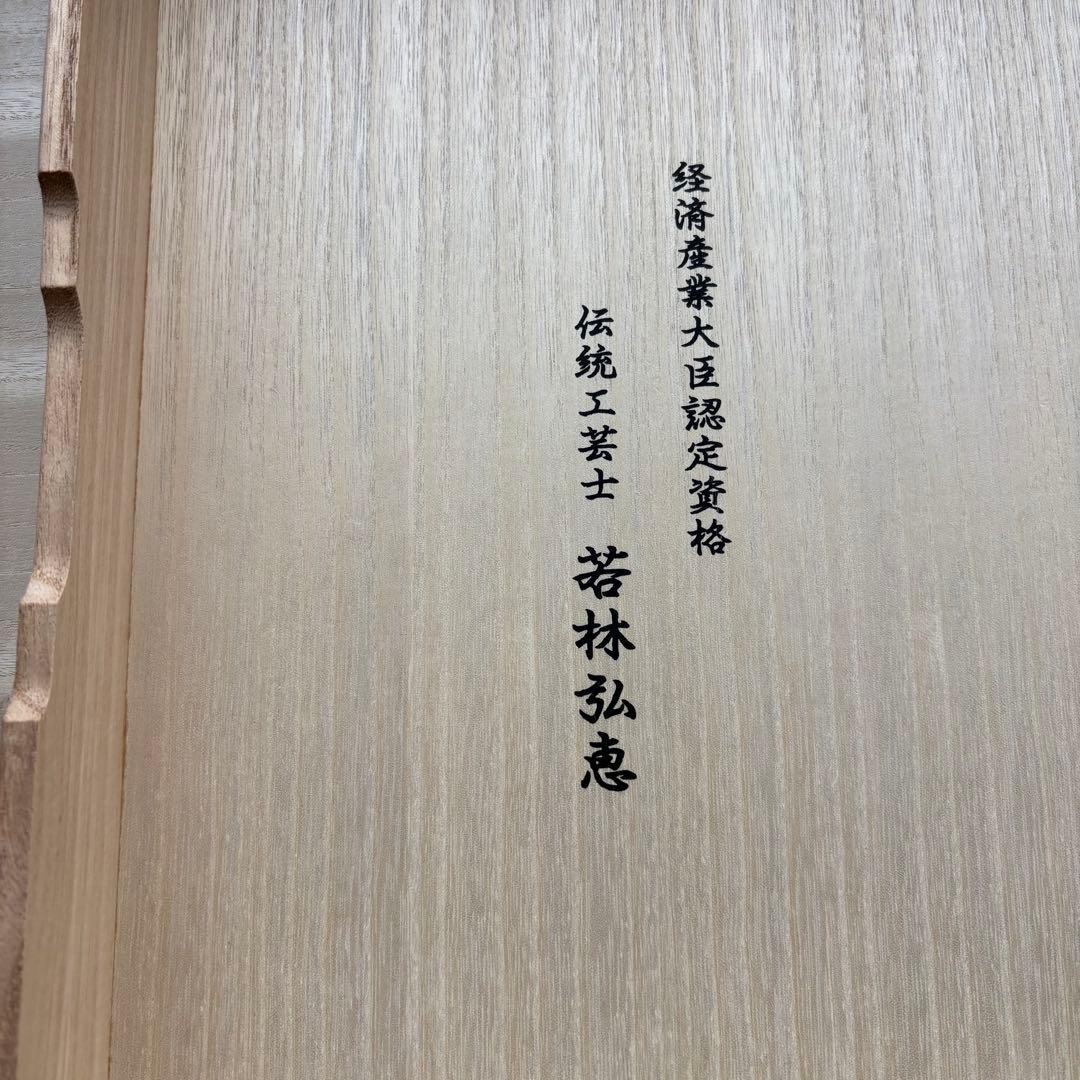 経済産業大臣認定資格
伝統工芸士 若林弘恵